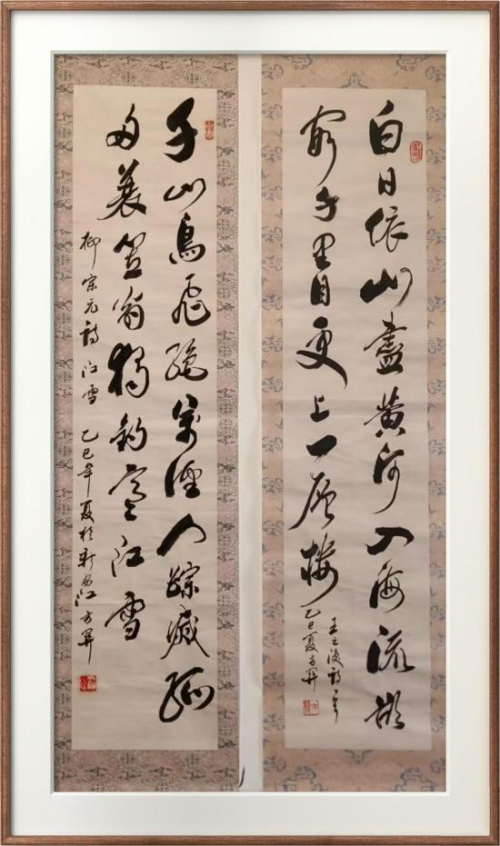 白日依山盡黄河入海流欲
窮千里目更上一層樓
王之渙詩
乙巳夏
千山鳥飛絕萬徑人踪滅孤
舟蓑笠翁獨釣寒江雪
柳宗元詩 江雪 乙巳年夏於